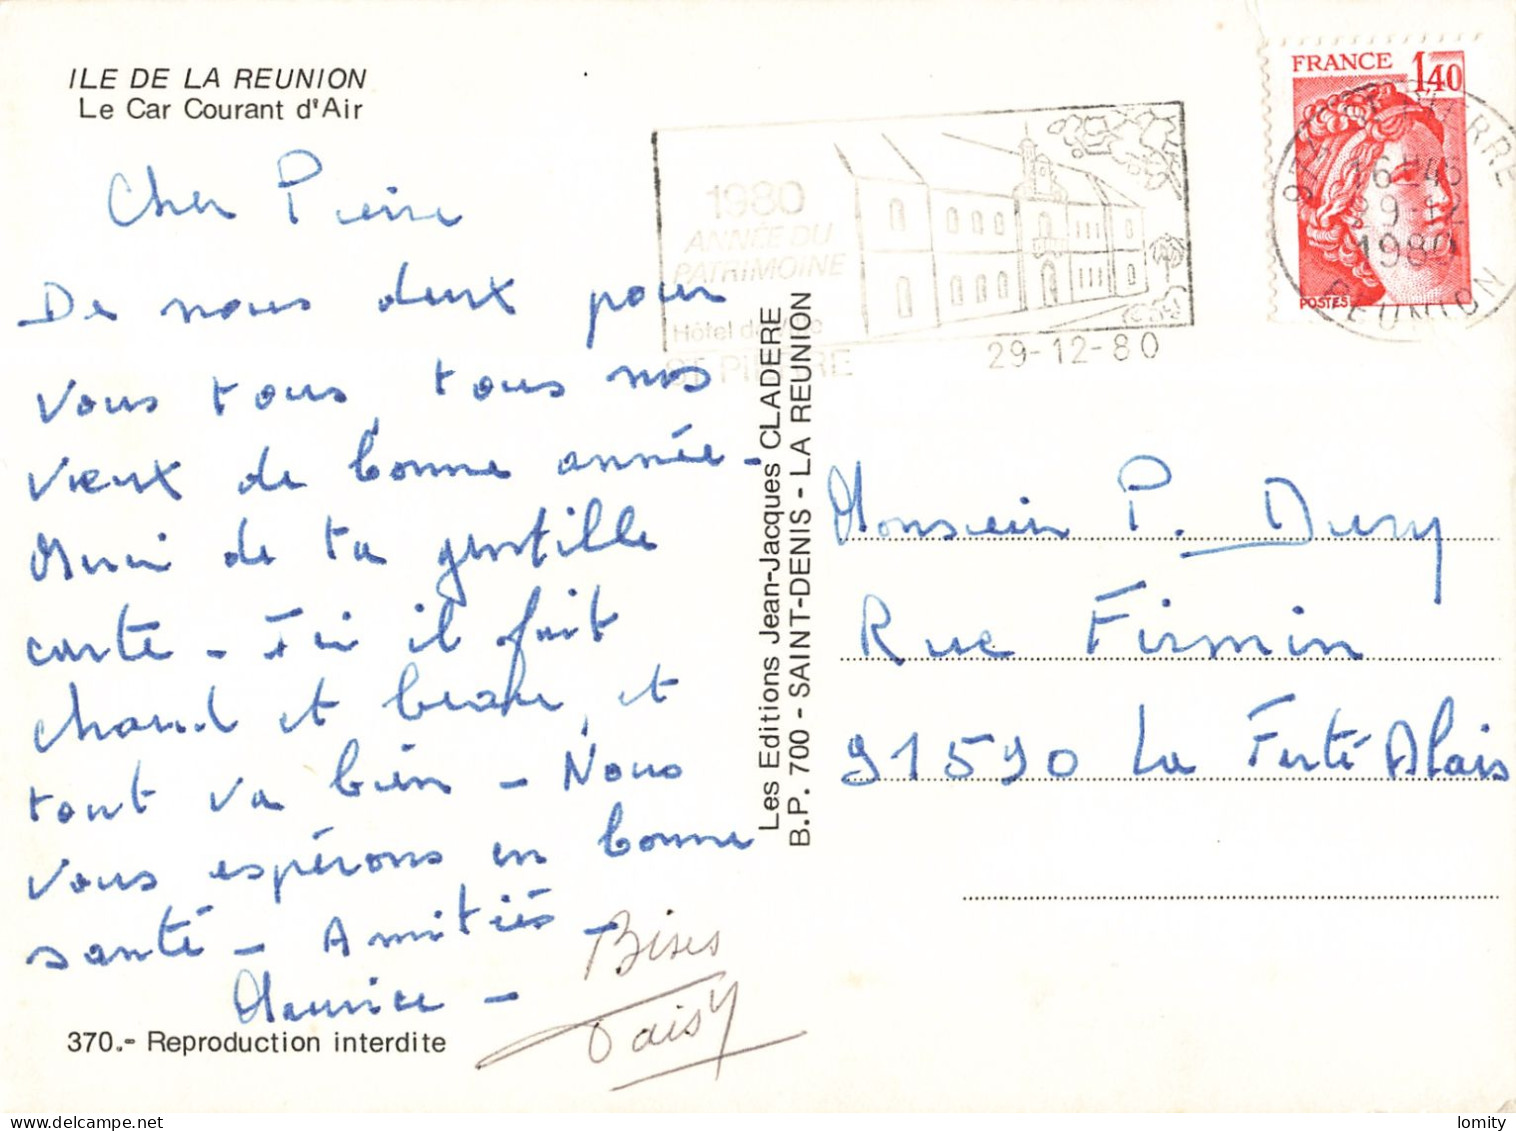 ILE DE LA REUNION
Le Car Courant d'Air
Cher Pierre
De nous deux pour
vous tous tous nos
vœux de bonne année -
Merci de ta gentille
carte - Ici il fait
chaud et beau, et
tout va bien - Nous
vous espérons en bonne
santé - Amitiés -
Maurice -
Bises
Daisy
370.- Reproduction interdite
Les Editions Jean-Jacques CLADERE
B.P. 700 - SAINT-DENIS - LA REUNION
1980
ANNÉE DU
PATRIMOINE
Hôtel de Ville
ST PIERRE
29-12-80
FRANCE 1,40
POSTES
974 ST PIERRE
16H45
29-12
1980
REUNION
Monsieur P. Dury
Rue Firmin
91590 La Ferté Alais
lomity